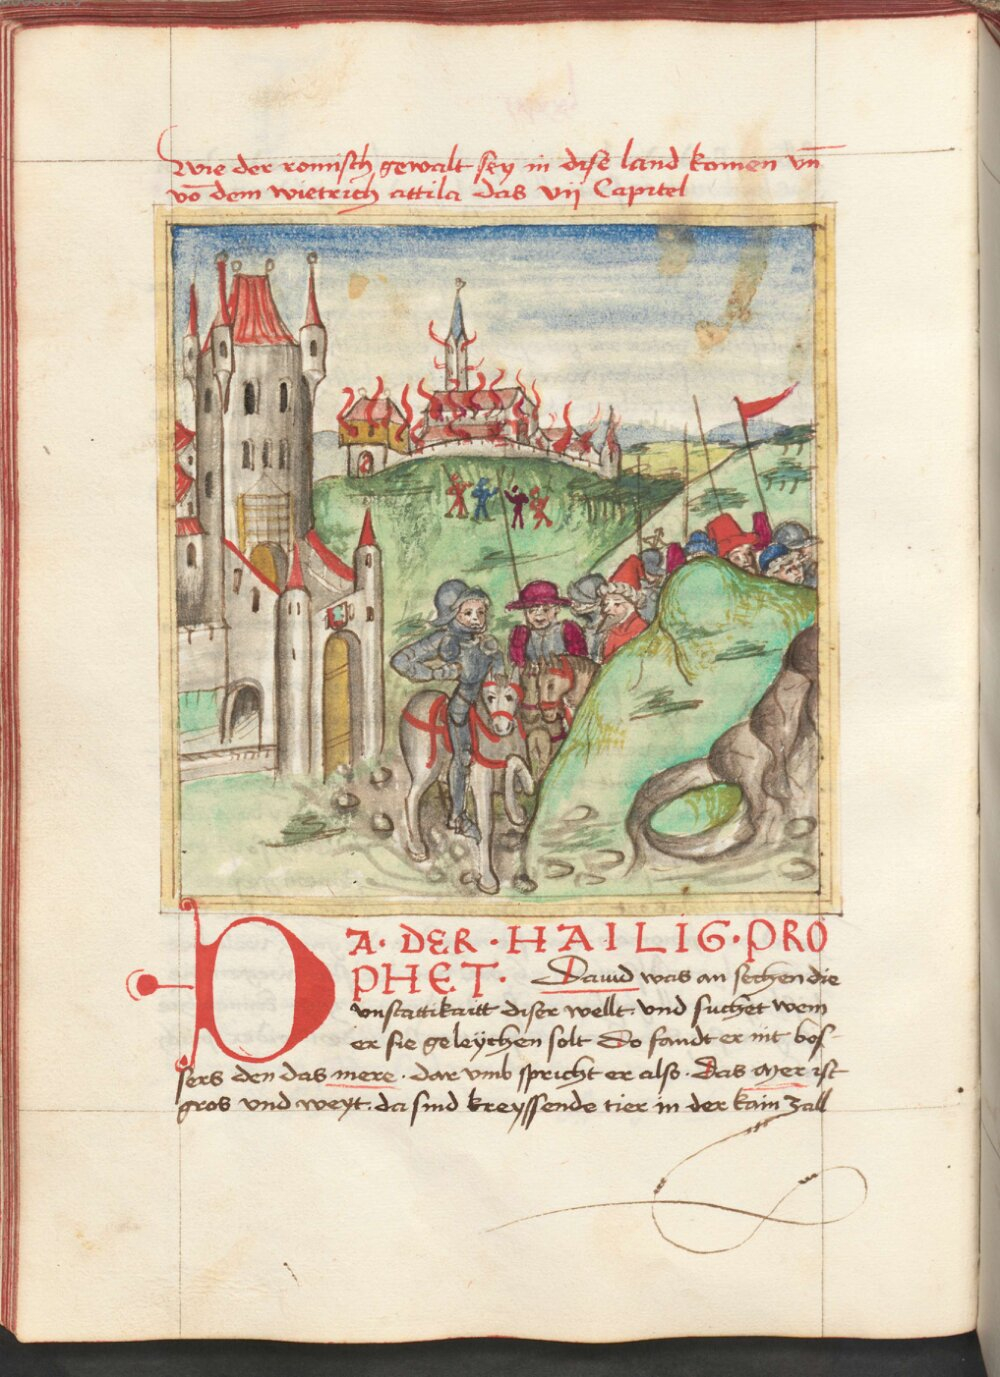 Wie der romisch gewalt sey in dise land komen vn̄
vō dem wietrich attila das vij Capitel
DA · DER · HAILIG · PRO
PHET · Dauid was an sechen die
vnstattikaitt diser wellt vnd suchet wem
er sie geleychen solt Do fandt er nit bos-
sers den das mere · dar vmb spricht er also · Das mer ist
gros vnd weyt · da sind kreyssende tier in der kain zall